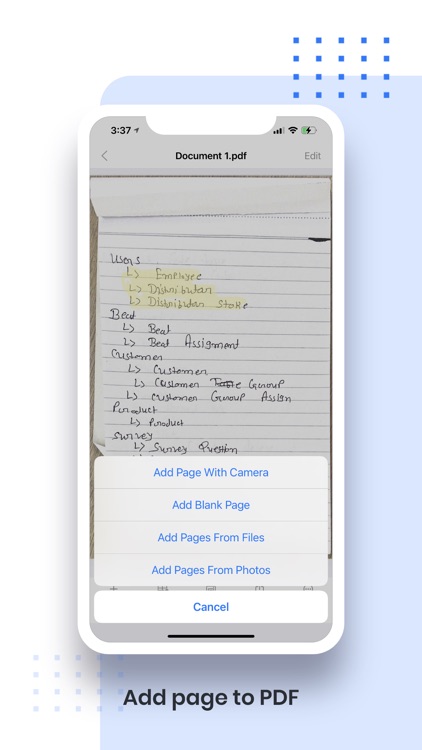 3:37
Document 1.pdf
Edit
Users
↳ Employee
↳ Distributor
↳ Distributor State
Beat
↳ Beat
↳ Beat Assigment
Customer
↳ Customer
↳ Customer Group
↳ Customer Group Assign
Product
↳ Product
Survey
↳ Survey Question
Add Page With Camera
Add Blank Page
Add Pages From Files
Add Pages From Photos
Cancel
Add page to PDF